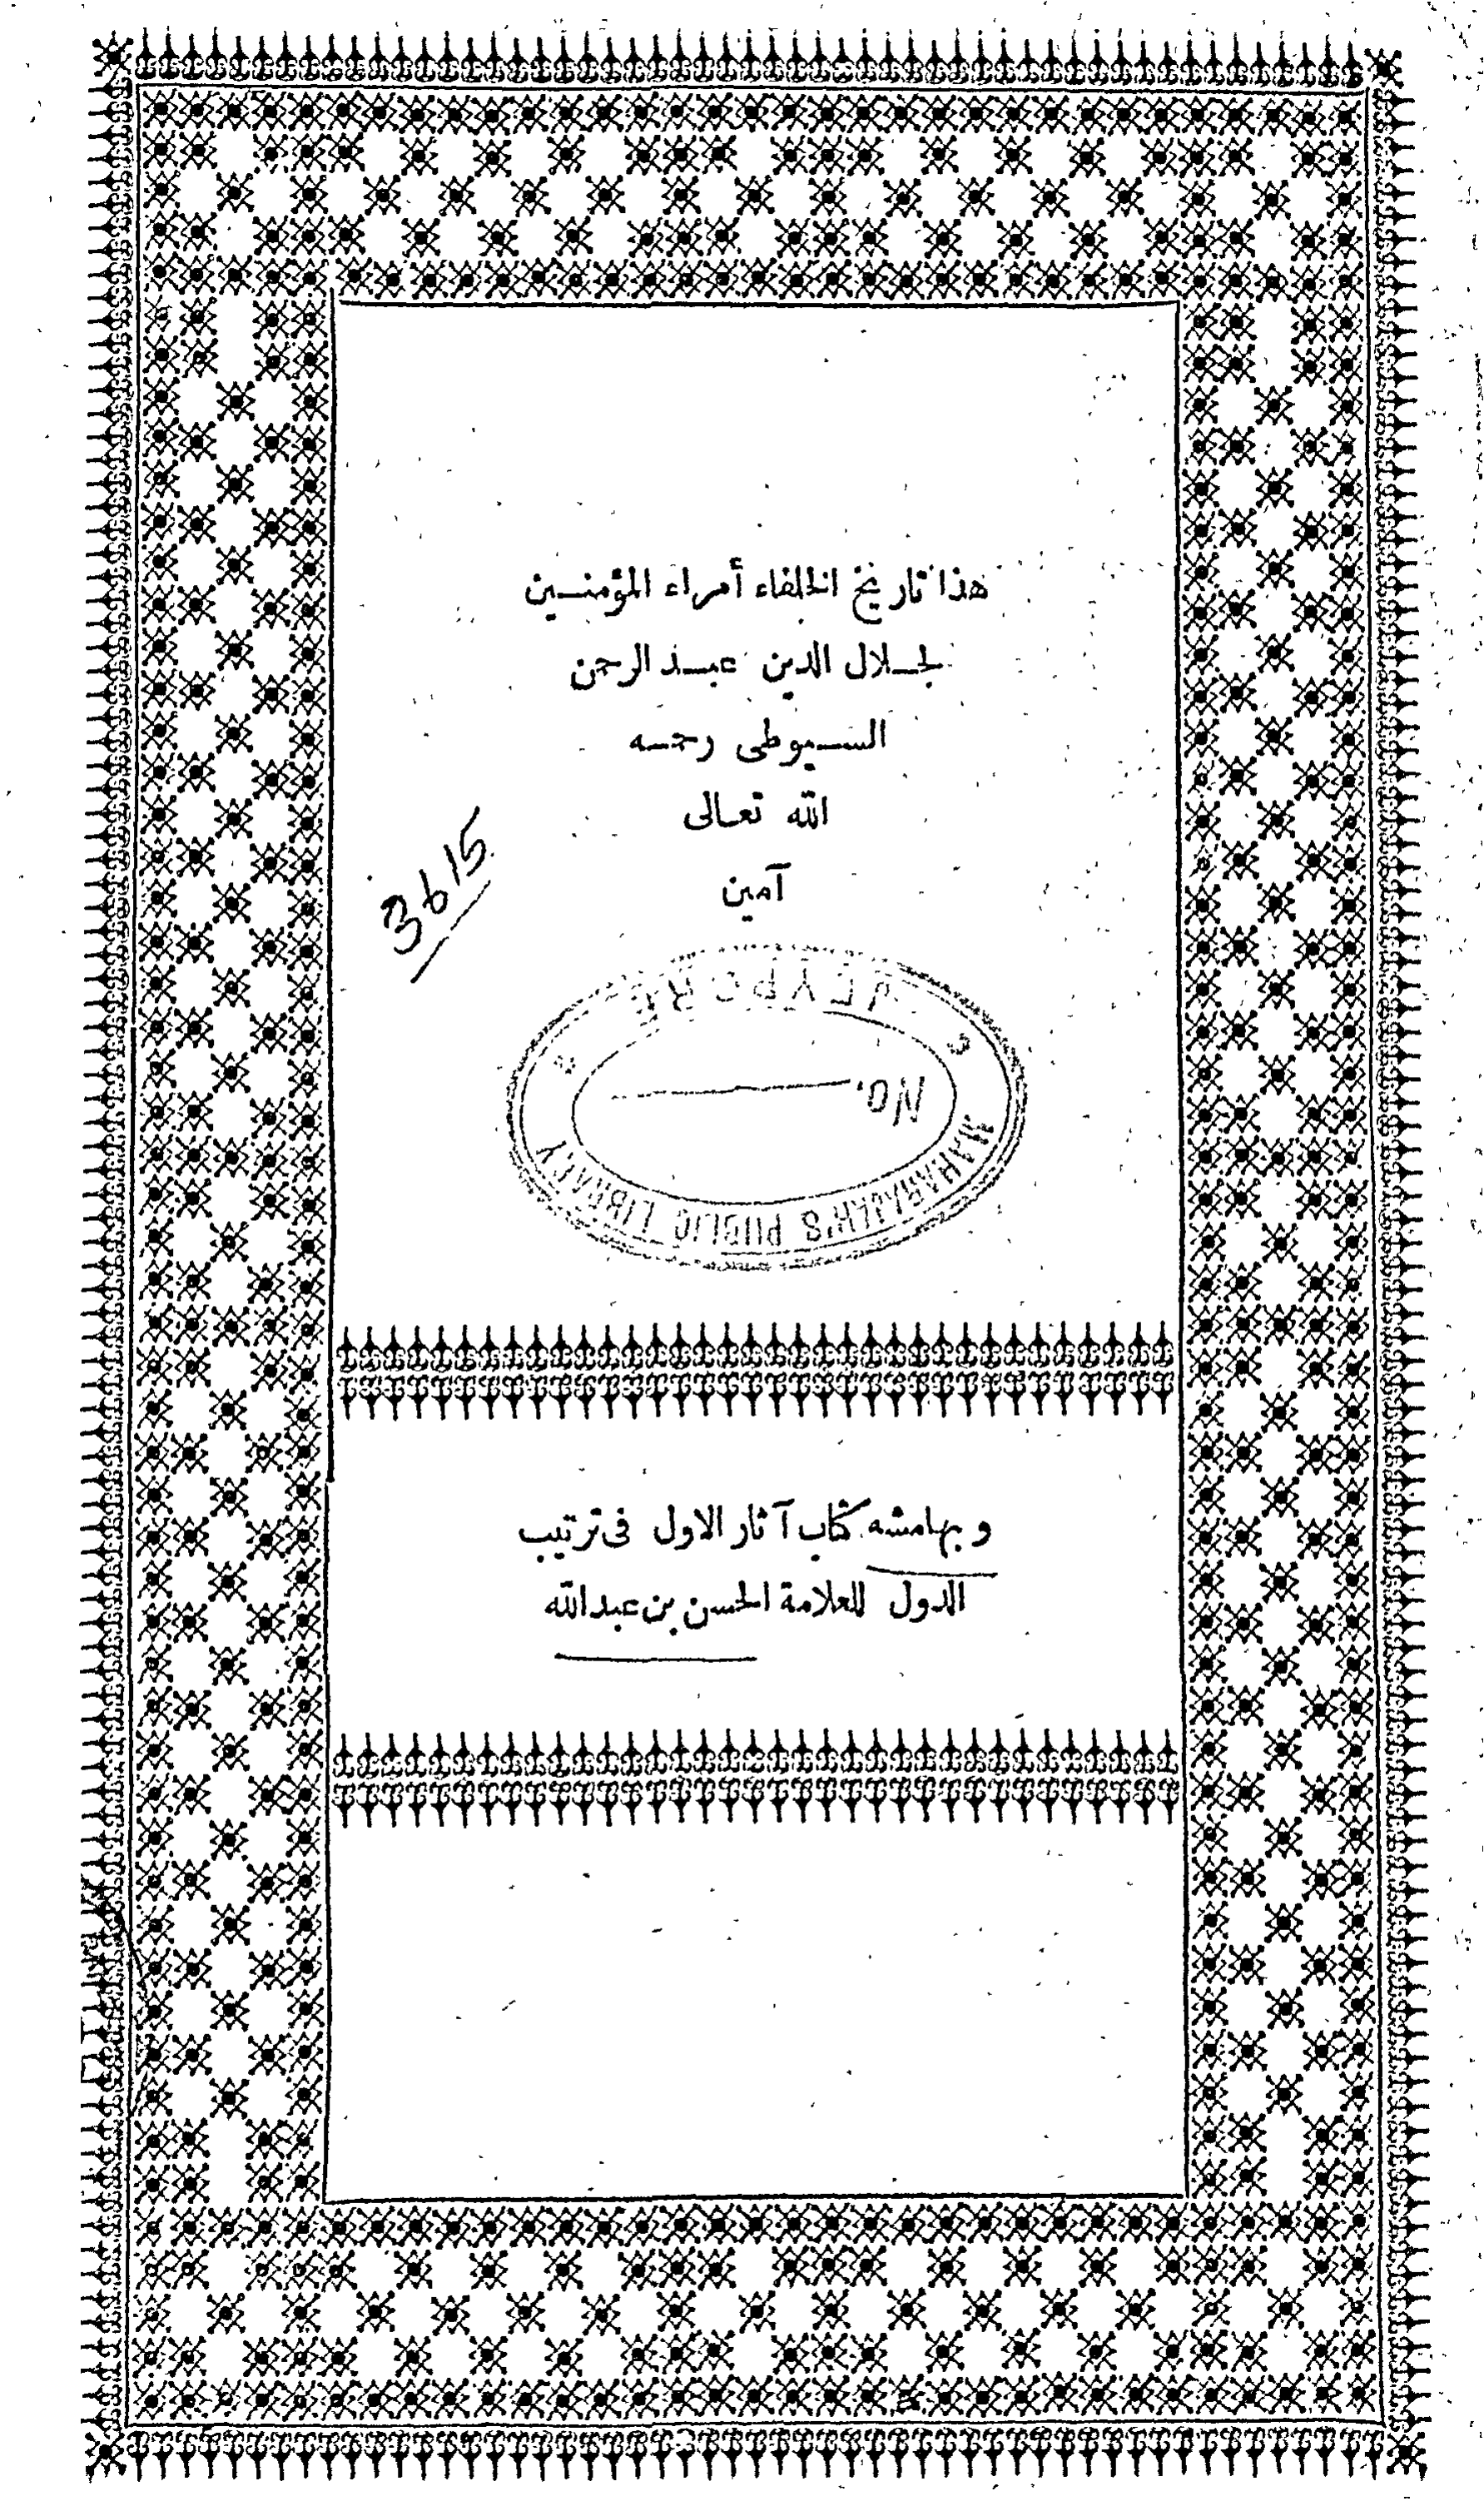 هذا تاريخ الخلفاء أمراء المؤمنين
لجلال الدين عبد الرحمن
السيوطى رحمه
الله تعالى
آمين
3615
JEYPORE
No.
MAHARAJAH'S PUBLIC LIBRARY
وبهامشه كتاب آثار الاول فى ترتيب
الدول للعلامة الحسن بن عبد الله